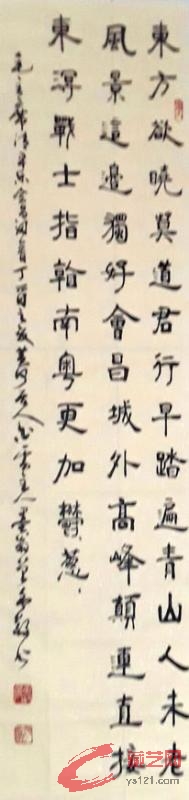 東方欲曉莫道君行早踏遍青山人未老
風景這邊獨好會昌城外高峰顛連直接
東溟戰士指看南粵更加鬱蔥
毛主席清平乐会昌词
丁酉
ys121.com